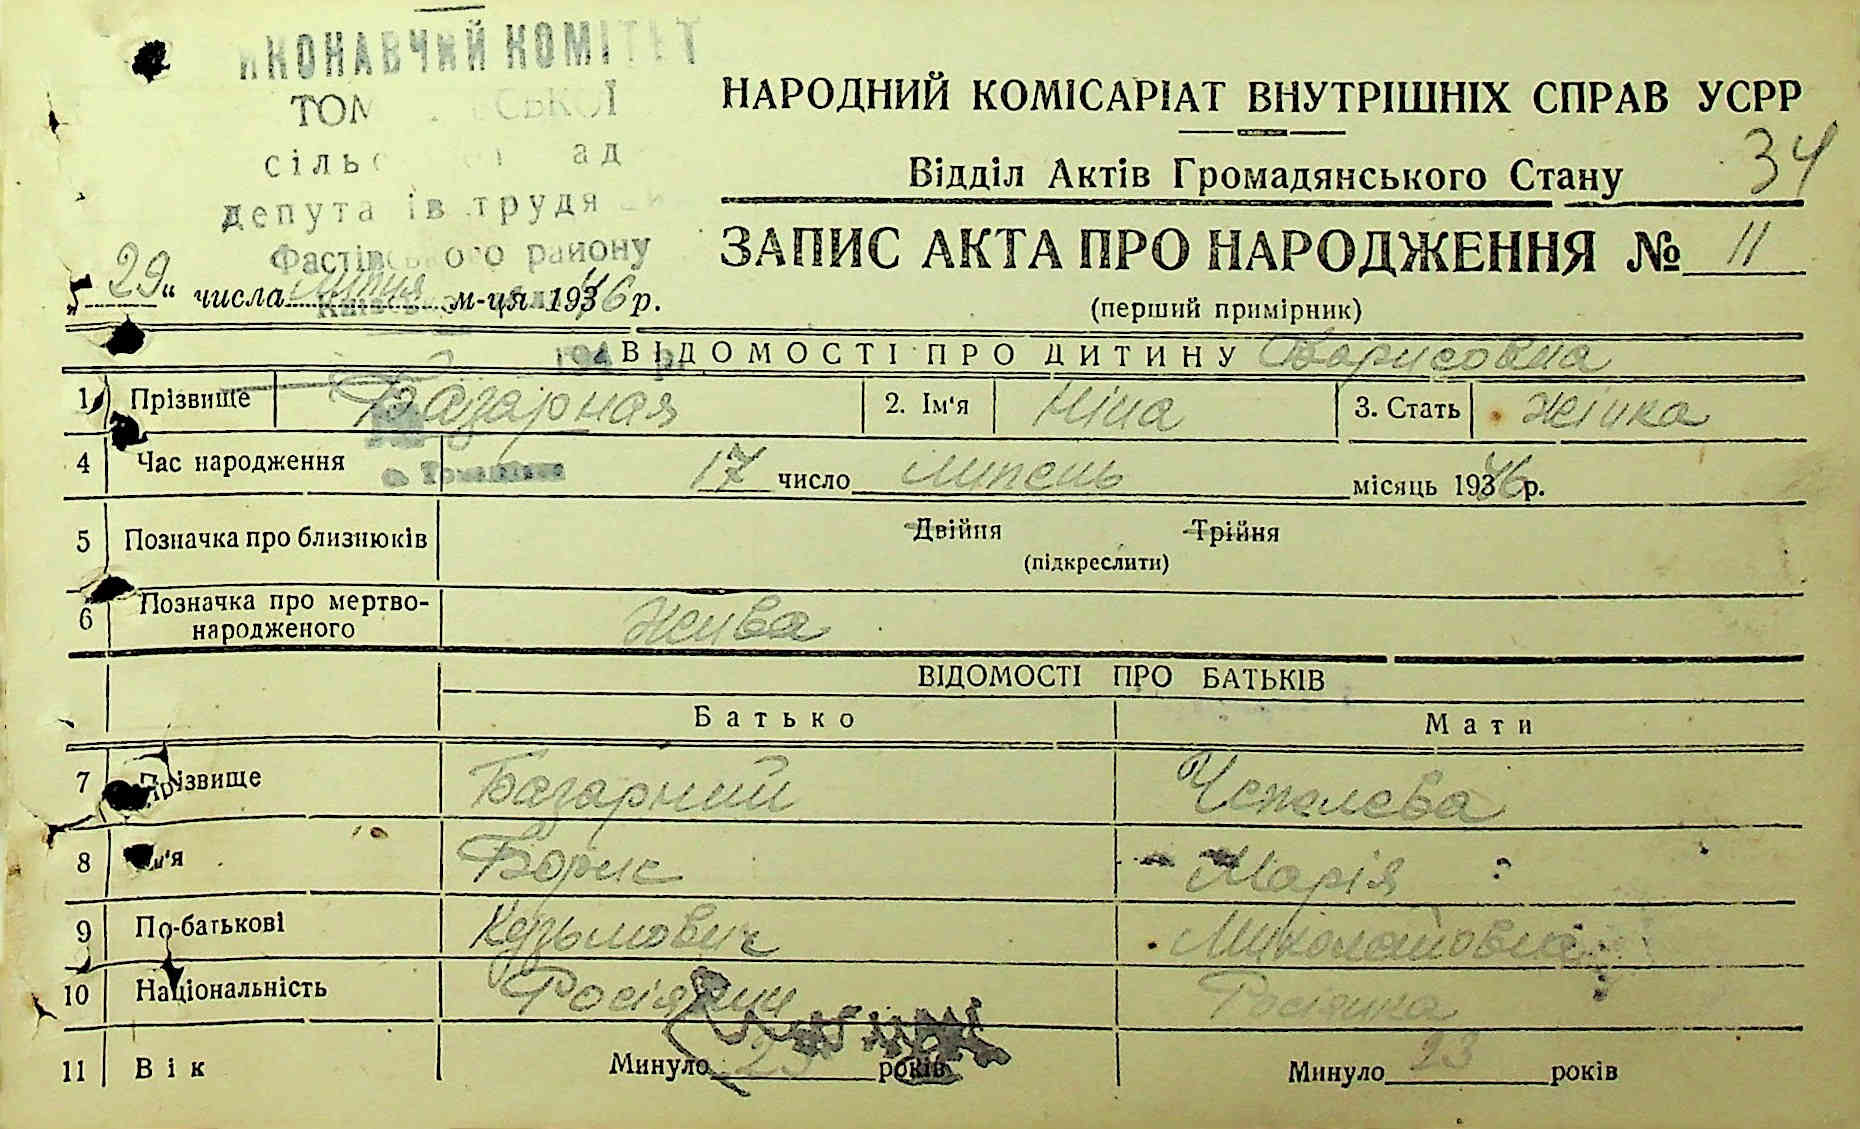 ИКОНАВЧИЙ КОМІТЕТ
НАРОДНИЙ КОМІСАРІАТ ВНУТРІШНІХ СПРАВ УСРР
Відділ Актів Громадянського Стану
34
Фастівського району
ЗАПИС АКТА ПРО НАРОДЖЕННЯ № 11
"29" числа липня м-ця 1946 р.
(перший примірник)
ВІДОМОСТІ ПРО ДИТИНУ Борисовна
1 Прізвище Базарная 2. Ім'я Ніна 3. Стать жінка
4 Час народження 17 число липень місяць 1946 р.
с. Томашівка
5 Позначка про близнюків Двійня Трійня
(підкреслити)
6 Позначка про мертво-
народженого жива
ВІДОМОСТІ ПРО БАТЬКІВ
Батько Мати
7 Прізвище Базарний Чепелева
8 Ім'я Борис Марія
9 По-батькові Кузьмович Миколайовна
10 Національність Росіянин Росіянка
11 Вік Минуло років Минуло 23 років